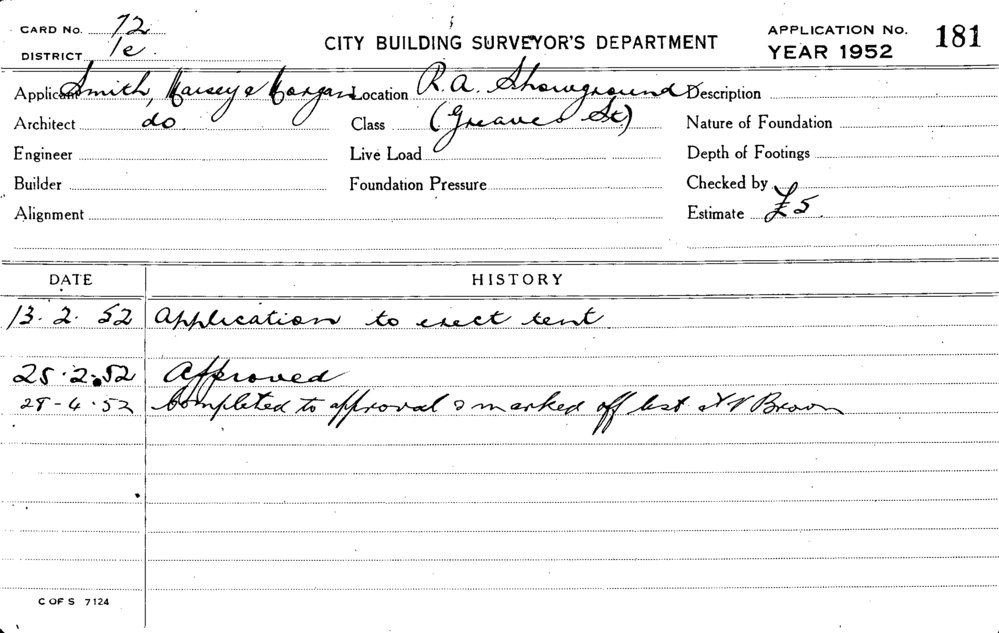 CARD No. 72
DISTRICT 1e
CITY BUILDING SURVEYOR'S DEPARTMENT
APPLICATION No. 181
YEAR 1952
Applicant Smith, & Morgan
Location R.A. Showground
Description
Architect do
Class (Greaves St)
Nature of Foundation
Engineer
Live Load
Depth of Footings
Builder
Foundation Pressure
Checked by
Alignment
Estimate £5
DATE HISTORY
13.2.52 Application to erect tent
25.2.52 Approved
29-4.52 Completed to approval & marked off list Brown
C OF S 7124